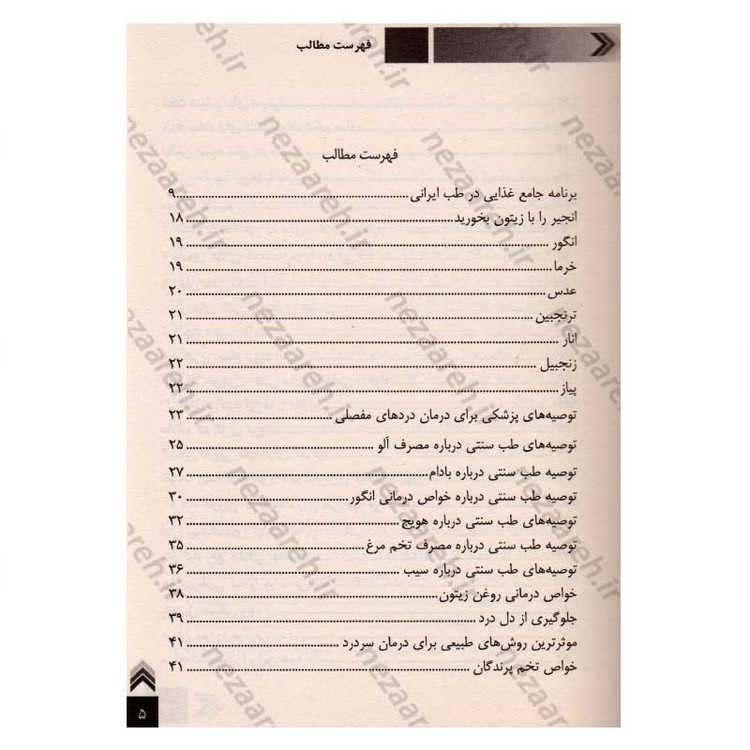 فهرست مطالب
فهرست مطالب
برنامه جامع غذایی در طب ایرانی ۹
انجیر را با زیتون بخورید ۱۸
انگور ۱۹
خرما ۱۹
عدس ۲۰
ترنجبین ۲۱
انار ۲۱
زنجبیل ۲۲
پیاز ۲۲
توصیه‌های پزشکی برای درمان دردهای مفصلی ۲۳
توصیه‌های طب سنتی درباره مصرف آلو ۲۵
توصیه طب سنتی درباره بادام ۲۷
توصیه طب سنتی درباره خواص درمانی انگور ۳۰
توصیه‌های طب سنتی درباره هویج ۳۲
توصیه طب سنتی درباره مصرف تخم مرغ ۳۵
توصیه‌های طب سنتی درباره سیب ۳۶
خواص درمانی روغن زیتون ۳۸
جلوگیری از دل درد ۳۹
موثرترین روش‌های طبیعی برای درمان سردرد ۴۱
خواص تخم پرندگان ۴۱
۵
nezaareh.ir